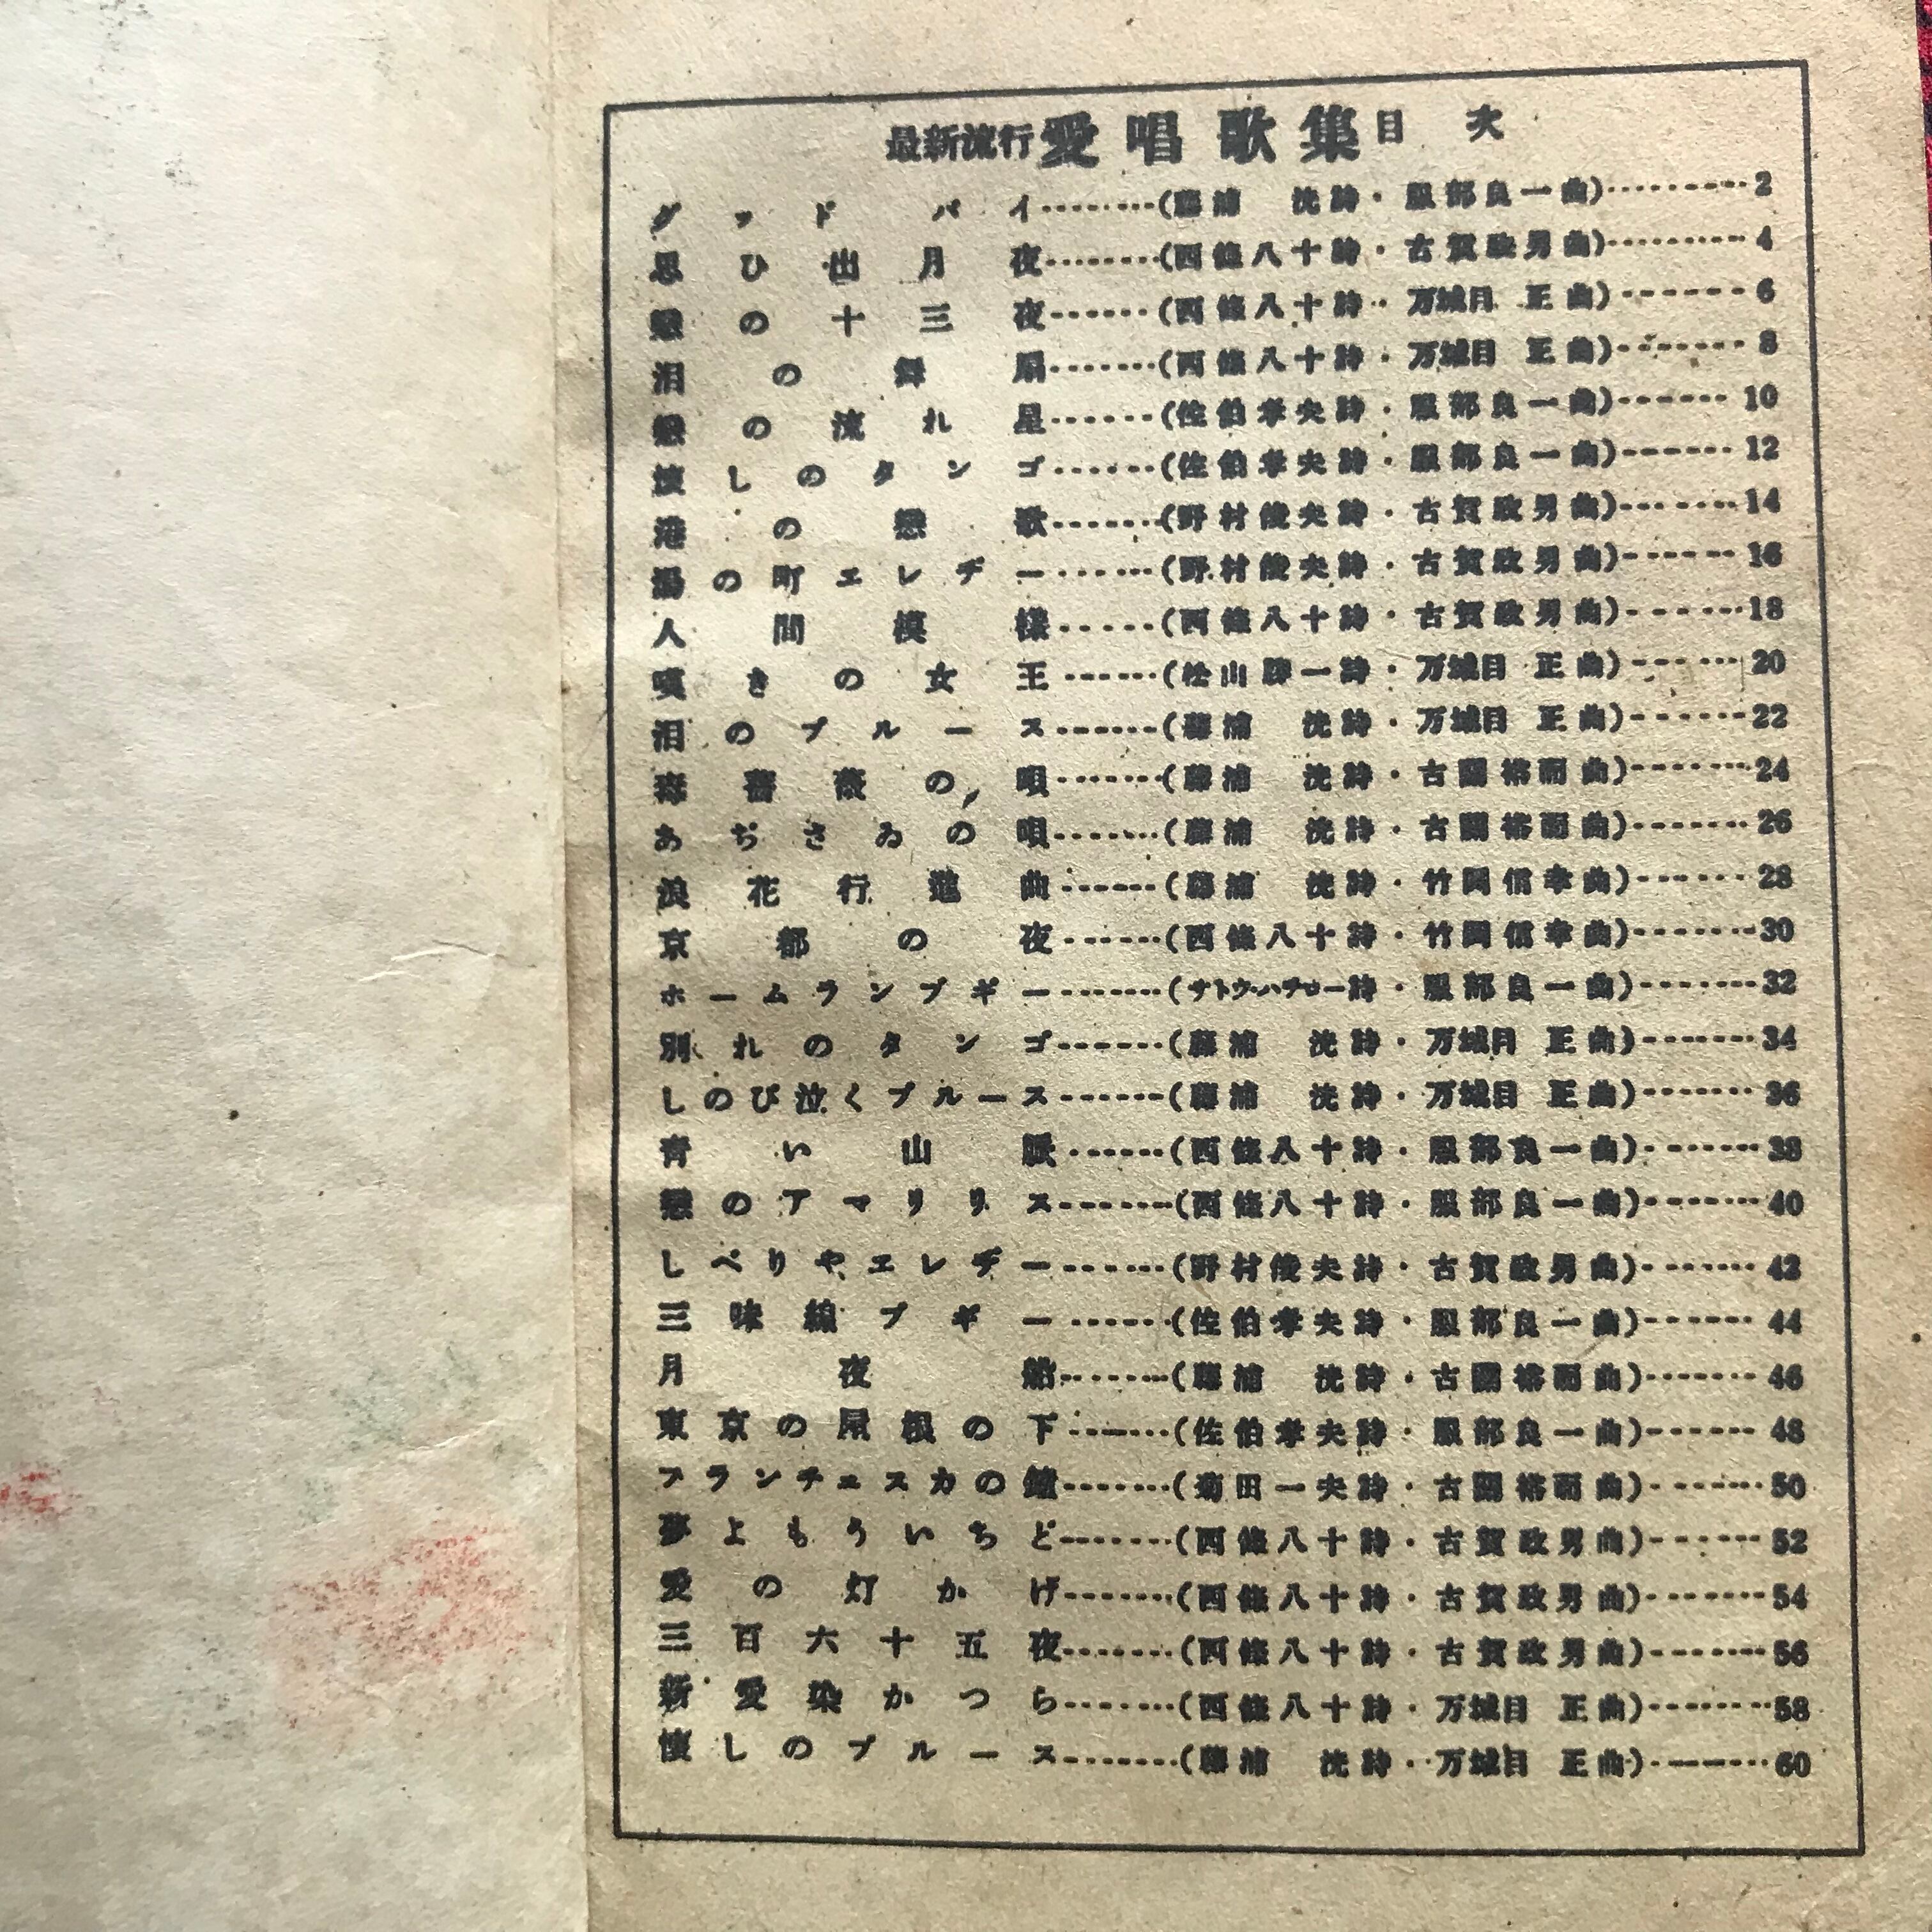 最新流行 愛唱歌集 目次
グッドバイ………(藤浦 洸詩・服部良一曲)………2
思ひ出月夜………(西條八十詩・古賀政男曲)………4
戀の十三夜………(西條八十詩・万城目 正曲)………6
泪の舞扇………(西條八十詩・万城目 正曲)………8
戀の流れ星………(佐伯孝夫詩・服部良一曲)………10
懐しのタンゴ………(佐伯孝夫詩・服部良一曲)………12
港の戀歌………(野村俊夫詩・古賀政男曲)………14
湯の町エレヂー………(野村俊夫詩・古賀政男曲)………16
人間模様………(西條八十詩・古賀政男曲)………18
嘆きの女王………(松山勝一詩・万城目 正曲)………20
泪のブルース………(藤浦 洸詩・万城目 正曲)………22
毒薔薇の唄………(藤浦 洸詩・古關裕而曲)………24
あぢさゐの唄………(藤浦 洸詩・古關裕而曲)………26
浪花行進曲………(藤浦 洸詩・竹岡信幸曲)………28
京都の夜………(西條八十詩・竹岡信幸曲)………30
ホームランブギー………(サトウ・ハチロー詩・服部良一曲)………32
別れのタンゴ………(藤浦 洸詩・万城目 正曲)………34
しのび泣くブルース………(藤浦 洸詩・万城目 正曲)………36
青い山脈………(西條八十詩・服部良一曲)………38
戀のアマリリス………(西條八十詩・服部良一曲)………40
しべりやエレヂー………(野村俊夫詩・古賀政男曲)………42
三味線ブギー………(佐伯孝夫詩・服部良一曲)………44
月夜船………(藤浦 洸詩・古關裕而曲)………46
東京の屋根の下………(佐伯孝夫詩・服部良一曲)………48
フランチェスカの鐘………(菊田一夫詩・古關裕而曲)………50
夢よもういちど………(西條八十詩・古賀政男曲)………52
愛の灯かげ………(西條八十詩・古賀政男曲)………54
三百六十五夜………(西條八十詩・古賀政男曲)………56
新愛染かつら………(西條八十詩・万城目 正曲)………58
懐しのブルース………(藤浦 洸詩・万城目 正曲)………60